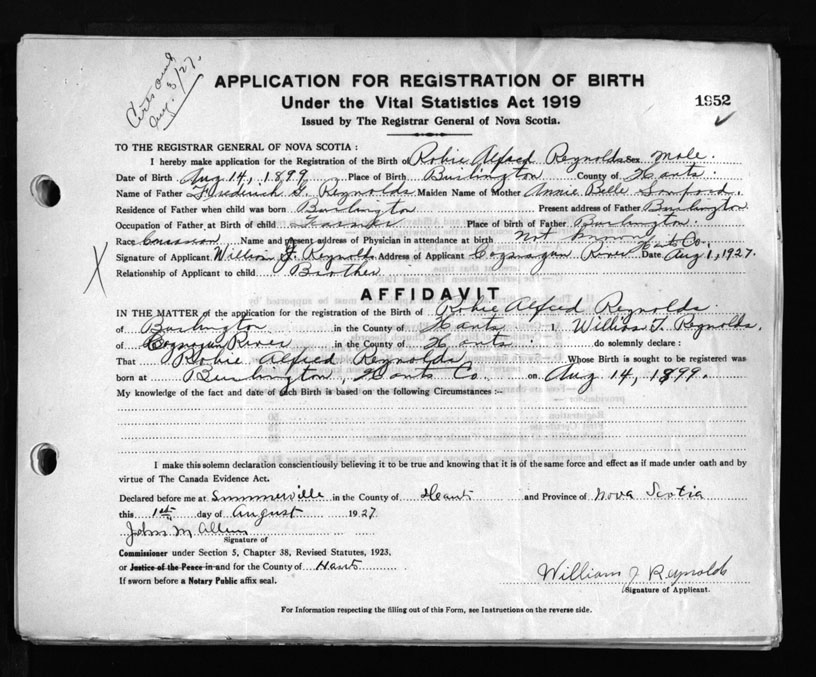 Aug. 3/27.
APPLICATION FOR REGISTRATION OF BIRTH
Under the Vital Statistics Act 1919
1952
Issued by The Registrar General of Nova Scotia.
TO THE REGISTRAR GENERAL OF NOVA SCOTIA :
I hereby make application for the Registration of the Birth of Robie Alfred Reynolds Sex male.
Date of Birth Aug 14, 1899 Place of Birth Burlington County of Hants.
Name of Father Frederick G. Reynolds Maiden Name of Mother Annie Belle Sanford.
Residence of Father when child was born Burlington Present address of Father Burlington
Occupation of Father at Birth of child Place of birth of Father Burlington.
Race Name and present address of Physician in attendance at birth not known
Signature of Applicant William J. Reynolds Address of Applicant River Hants Co. Date Aug 1, 1927.
Relationship of Applicant to child Brother
AFFIDAVIT
IN THE MATTER of the application for the registration of the Birth of Robie Alfred Reynolds.
of Burlington in the County of Hants I, William J. Reynolds,
of River in the County of Hants. do solemnly declare :
That Robie Alfred Reynolds Whose Birth is sought to be registered was
born at Burlington, Hants Co. on Aug 14, 1899.
My knowledge of the fact and date of such Birth is based on the following Circumstances :-
I make this solemn declaration conscientiously believing it to be true and knowing that it is of the same force and effect as if made under oath and by
virtue of The Canada Evidence Act.
Declared before me at Summerville in the County of Hants and Province of Nova Scotia
this 1st day of August 1927
John M Allen
Signature of
Commissioner under Section 5, Chapter 38, Revised Statutes, 1923,
or Justice of the Peace in and for the County of Hants
William J Reynolds
If sworn before a Notary Public affix seal.
Signature of Applicant.
For Information respecting the filling out of this Form, see Instructions on the reverse side.